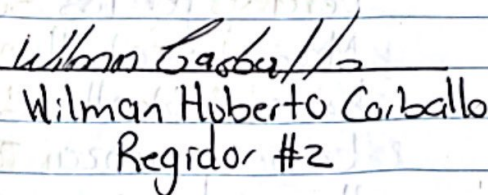 Wilman Carballo
Wilman Huberto Carballo
Regidor #2